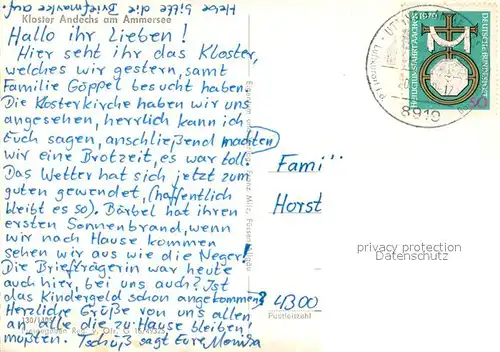 Hebe bitte die Briefmarke auf.
Kloster Andechs am Ammersee
Hallo ihr Lieben!
Hier seht ihr das Kloster,
welches wir gestern, samt
Familie Göppel besucht haben.
Die Klosterkirche haben wir uns
angesehen, herrlich kann ich
Euch sagen, anschließend machten
wir eine Brotzeit, es war toll.
Das Wetter hat sich jetzt zum
guten gewendet, (hoffentlich
bleibt es so). Bärbel hat ihren
ersten Sonnenbrand, wenn
wir nach Hause kommen
sehen wir aus wie die Neger!
Die Briefträgerin war heute
auch hier, bei uns auch? Ist
das Kindergeld schon angekommen?
Herzliche Grüße von uns allen
an alle die zu Hause bleiben
mußten. Tschüß sagt Eure Monika
130/1405
Franz Milz, Füssen
DEUTSCHE BUNDESPOST
50
8919
Fami
Horst
4300
Postleitzahl
privacy protection
Datenschutz